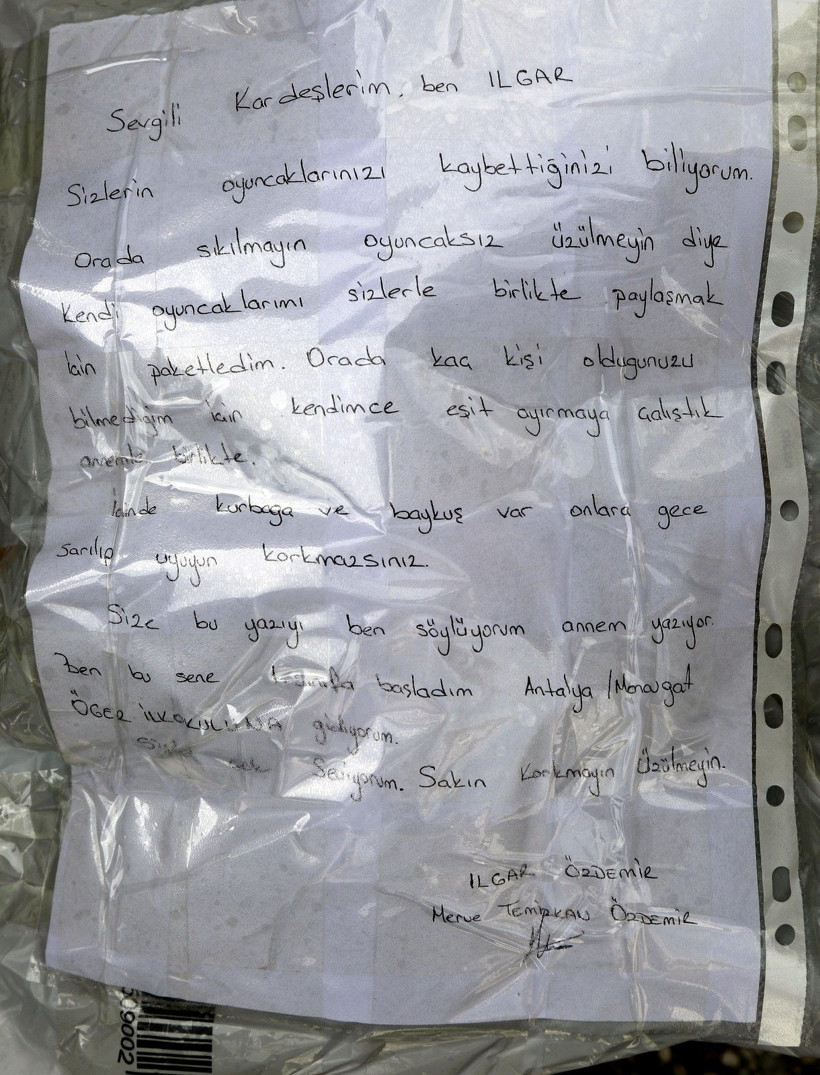 Sevgili Kardeşlerim, ben ILGAR
Sizlerin oyuncaklarınızı kaybettiğinizi biliyorum.
Orada sıkılmayın oyuncaksız üzülmeyin diye
Kendi oyuncaklarımı sizlerle birlikte paylaşmak
için paketledim. Orada kaç kişi olduğunuzu
bilmediğim için kendimce eşit ayırmaya çalıştık
annemle birlikte.
İçinde kurbağa ve baykuş var onlara gece
sarılıp uyuyun korkmazsınız.
Size bu yazıyı ben söylüyorum annem yazıyor.
Ben bu sene 1. sınıfa başladım Antalya / Manavgat
ÖGER İLKOKULUNA gidiyorum.
Sizi çok Seviyorum. Sakın Korkmayın Üzülmeyin.
ILGAR ÖZDEMİR
Merve TEMİRKAN ÖZDEMİR
509002